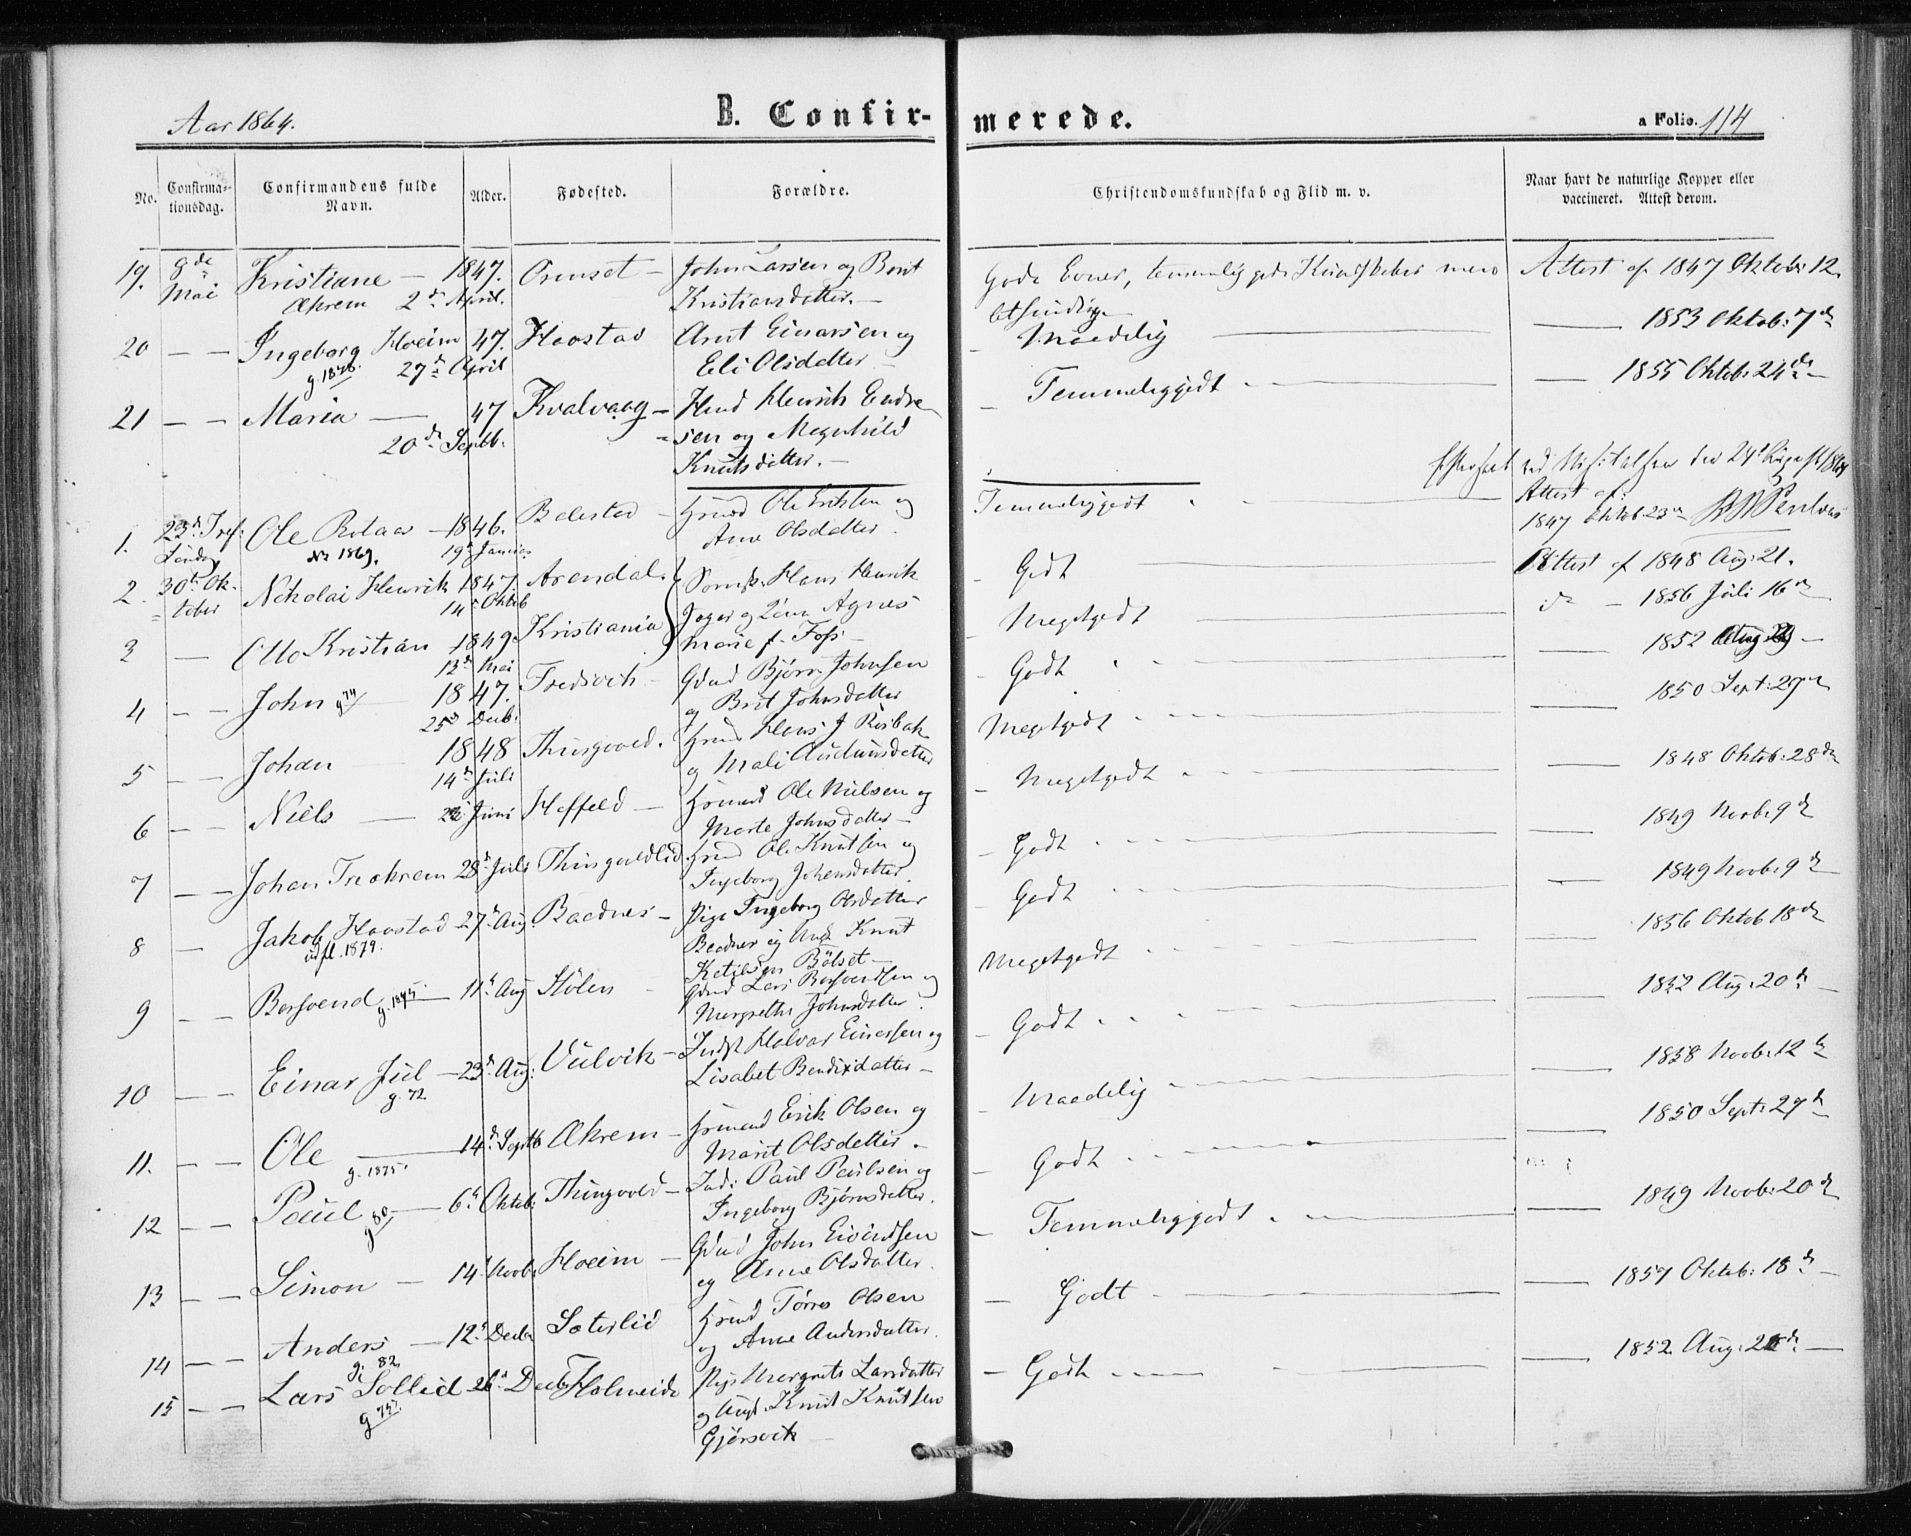 Aar 1864.
B. Confirmerede.
a Folio. 114
No.
Confirmationsdag.
Confirmandens fulde Navn.
Alder.
Fødested.
Forældre.
Christendomskundskab og Flid m. v.
Naar havt de naturlige Kopper eller vaccineret. Attest derom.
19. 8de Mai Kristiane Økrem 1847. 2d April. John Larsen og Berit Kristiansdatter. Gode Evner, temmelig gode Kundskaber men letsindig Attest af 1847 Oktob: 12.
20 Ingeborg Hoeim 47. 27de April g. 1878. Haastad Arnt Einarsen og Eli Olsdatter Maadelig 1853 Oktob: 7de
21 Maria 47 20de Septb. Kvalvaag Knutsdatter. Temmeliggodt 1855 Oktob: 24de
1. 23d Tref: Søndag Ole Rotaas 1846. 19de Januar No 1869. Ole Eriksen og Ane Olsdatter Temmeliggodt Attest af 1847 Oktob: 23de
2. 30te Oktober Nikolai Henrik 1847. 14de Oktob Arendal. Hans Henrik Godt Attest af 1848 Aug: 21.
3 Otto Kristian 1849. 13de Mai Kristiania Jæger og Agnes Marie f. Foss Megetgodt 1856 Juli 16de
4 John g 74 1847. 25de Decb. Fredsvik Gbmd Bjørn Johnsen og Brit Johnsdatter Godt 1852 Aug
5 Johan 1848 14de Juli Thingvold. Hans J Rosbak og Mali Audunsdatter Megetgodt 1850 Sept: 29de
6 Niels Juni Heffeld Ole Nielsen og Marte Johnsdatter Megetgodt 1848 Oktob: 28de
7 Johan Treekrem 28de Juli Thingvoldlid Ole Knutsen og Ingeborg Johansdatter. Godt 1849 Novb: 9de
8 Jakob Haastad 27de Aug: udfl. 1879. Baadnes Pige Ingeborg Olsdatter Baadnes og Ungk Knut Ketilsen Bølset Godt 1849 Novb: 9de
9 Bersvend g. 1875. 11te Aug Stølen Gbmd Lars Bersvendsen og Margrethe Johnsdatter Megetgodt 1856 Oktob 18de
10 Einar Jul 23de Aug: g. 72 Vulvik Inds Halvar Einarsen og Lisabet Bendixdatter Godt 1852 Aug: 20de
11. Ole 14de Septb g. 1875. Økrem Erik Olsen og Marit Olsdatter Maadelig 1858 Novb: 12te
12 Paul g 80. 6te Oktob: Thingvold Ind: Paul Paulsen og Ingeborg Bjørnsdatter. Godt 1850 Sept: 27de
13 Simon 14de Novb. Hoeim Gbmd John Eivindsen og Ane Olsdatter. Temmeliggodt 1849 Novb: 20de
14 Anders 12te Decbr g. 82 Sæterlid Tørris Olsen og Ane Andersdatter. Godt 1857 Oktob: 18de
15 Lars Sollid 26de Decbr g 75. Holmeide Pige Margrete Larsdatter og Ungk. Knut Knutsen Gjørsvik Godt 1852 Aug: